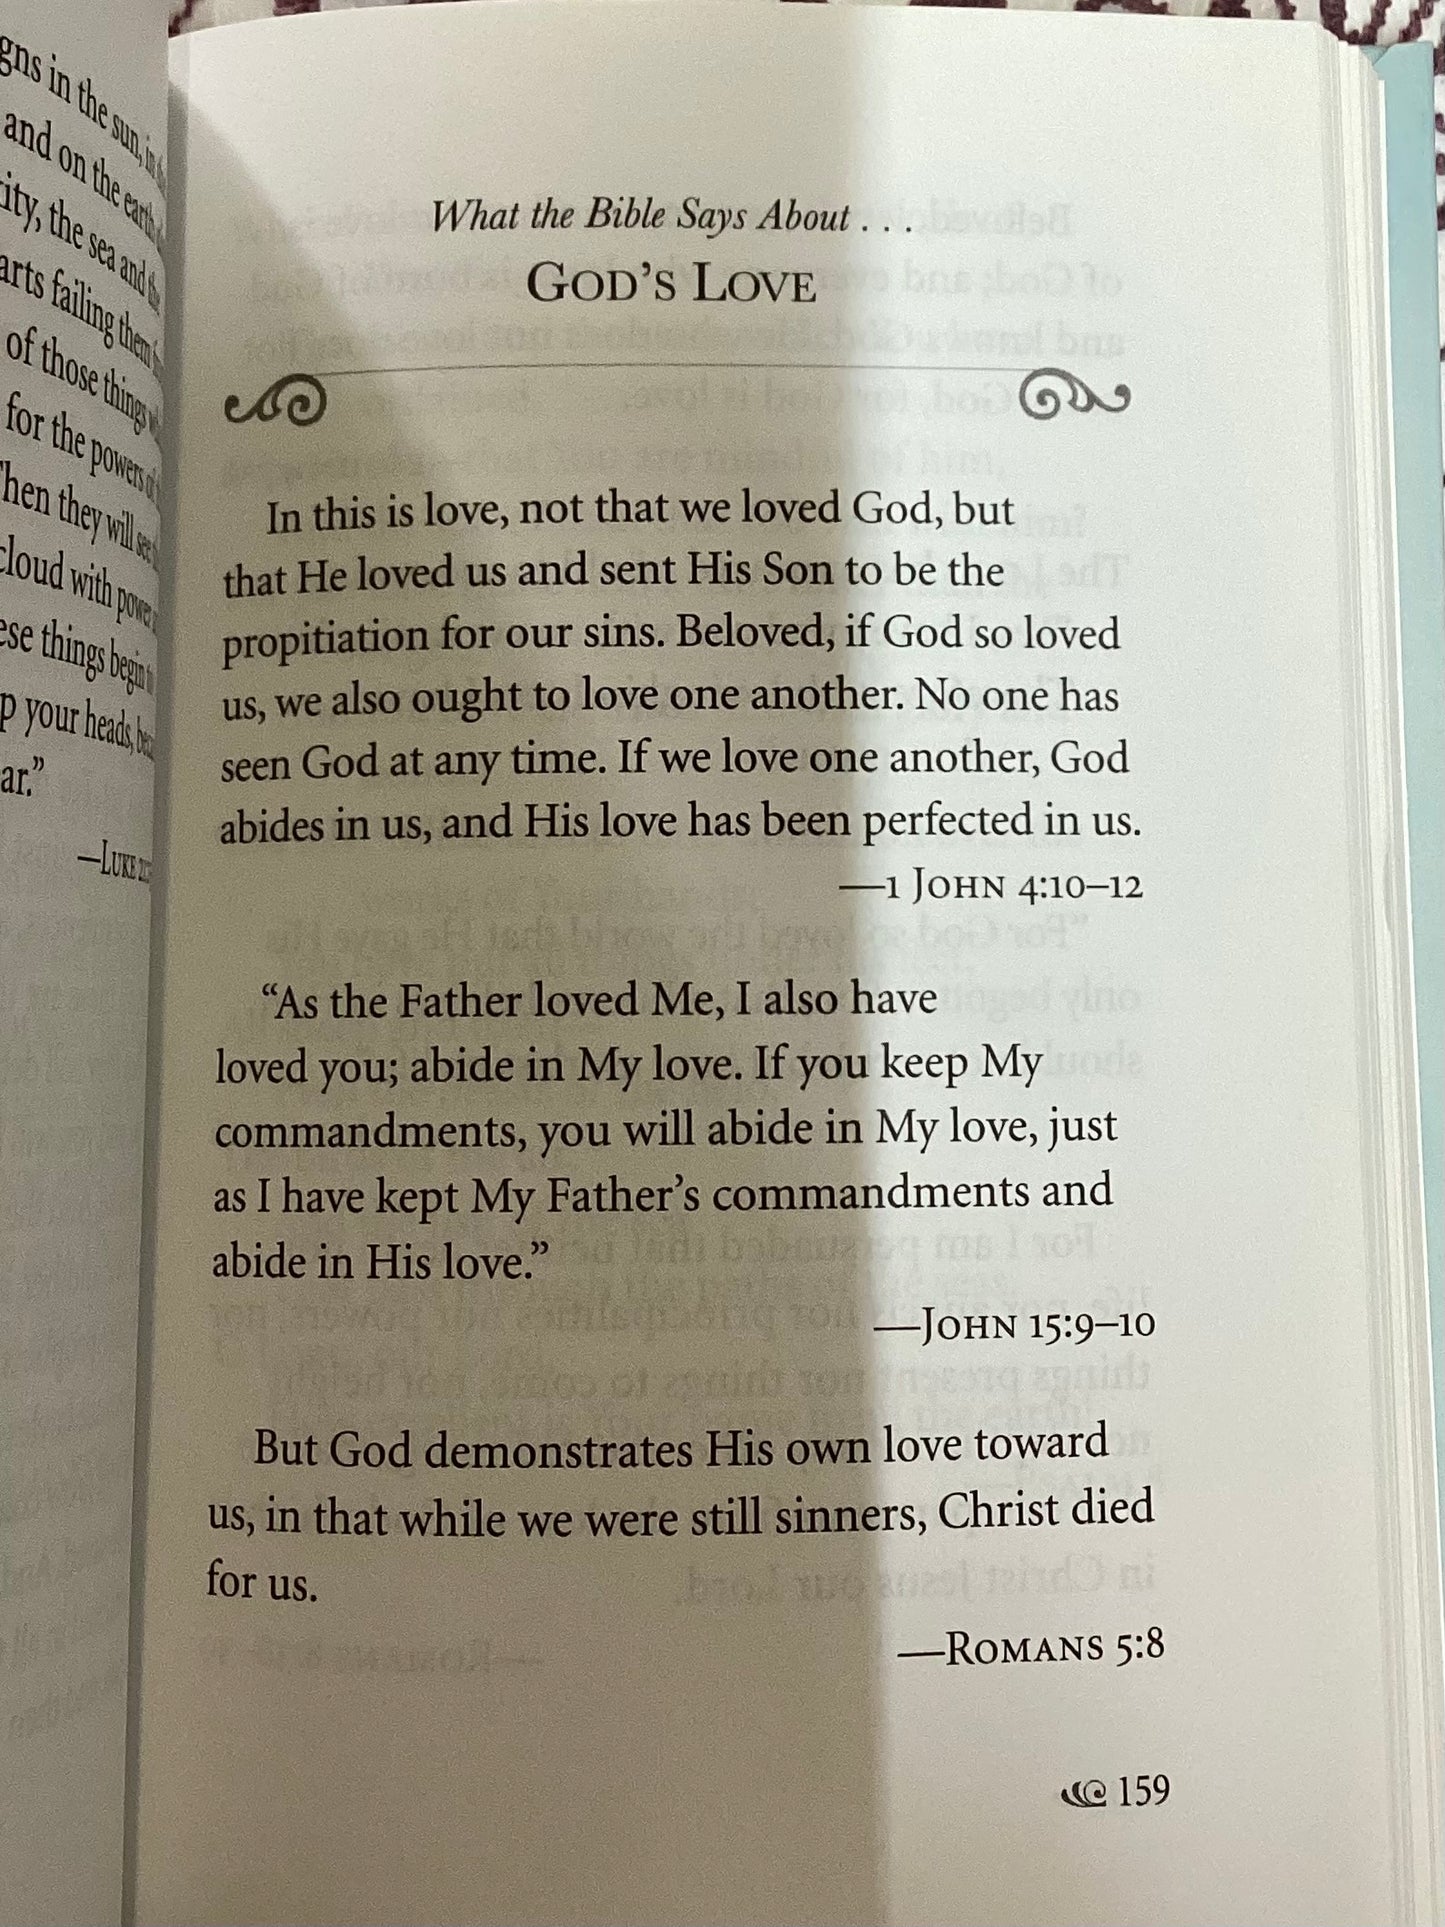 gns in the sun, in
and on the earth
ity, the sea and the
arts failing them
of those things
for the powers of
hen they will see
cloud with power
ese things begin to
p your heads,
ar.”
—LUKE
What the Bible Says About . . .
GOD’S LOVE
In this is love, not that we loved God, but
that He loved us and sent His Son to be the
propitiation for our sins. Beloved, if God so loved
us, we also ought to love one another. No one has
seen God at any time. If we love one another, God
abides in us, and His love has been perfected in us.
—1 JOHN 4:10–12
“As the Father loved Me, I also have
loved you; abide in My love. If you keep My
commandments, you will abide in My love, just
as I have kept My Father’s commandments and
abide in His love.”
—JOHN 15:9–10
But God demonstrates His own love toward
us, in that while we were still sinners, Christ died
for us.
—ROMANS 5:8
159